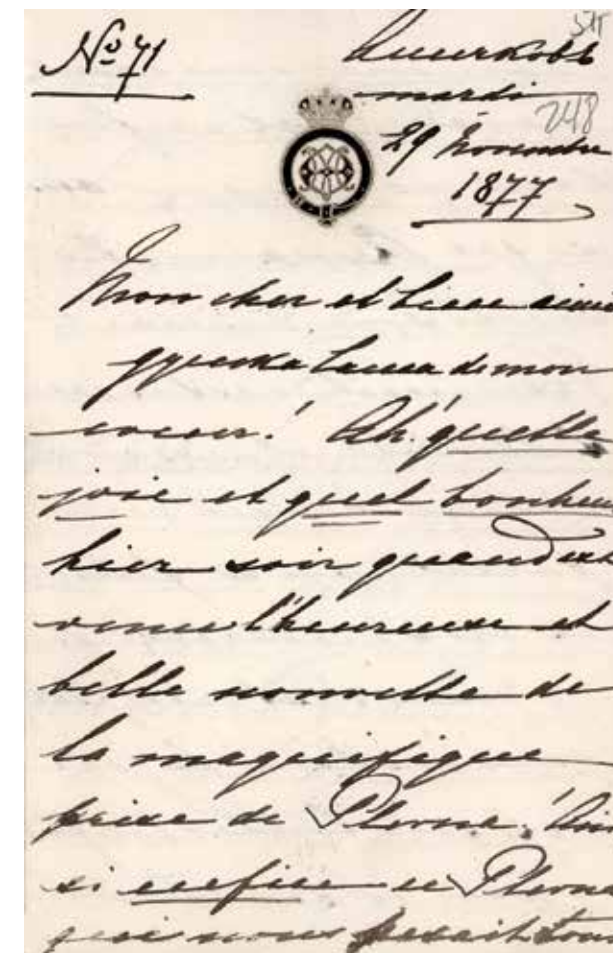 № 71
Аничковъ
mardi
29 Novembre
1877
515
248
Mon cher et bien aimé
душка Саша de mon
coeur! Ah! quelle
joie et quel bonheur
hier soir quand est
venu l'heureuse et
belle nouvelle de
la magnifique
prise de Plevna! Ain
si enfin ce Plevna
qui nous pesait tous